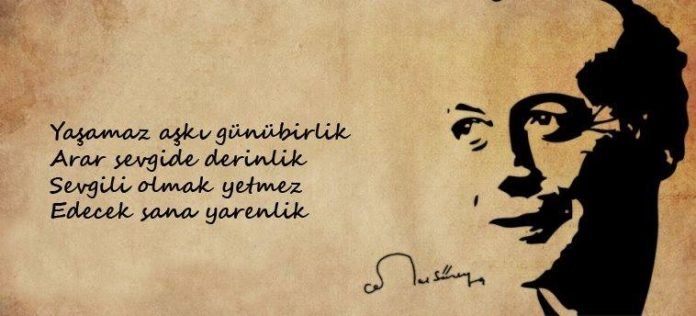 Yaşamaz aşkı günübirlik
Arar sevgide derinlik
Sevgili olmak yetmez
Edecek sana yarenlik
Cemal Süreya